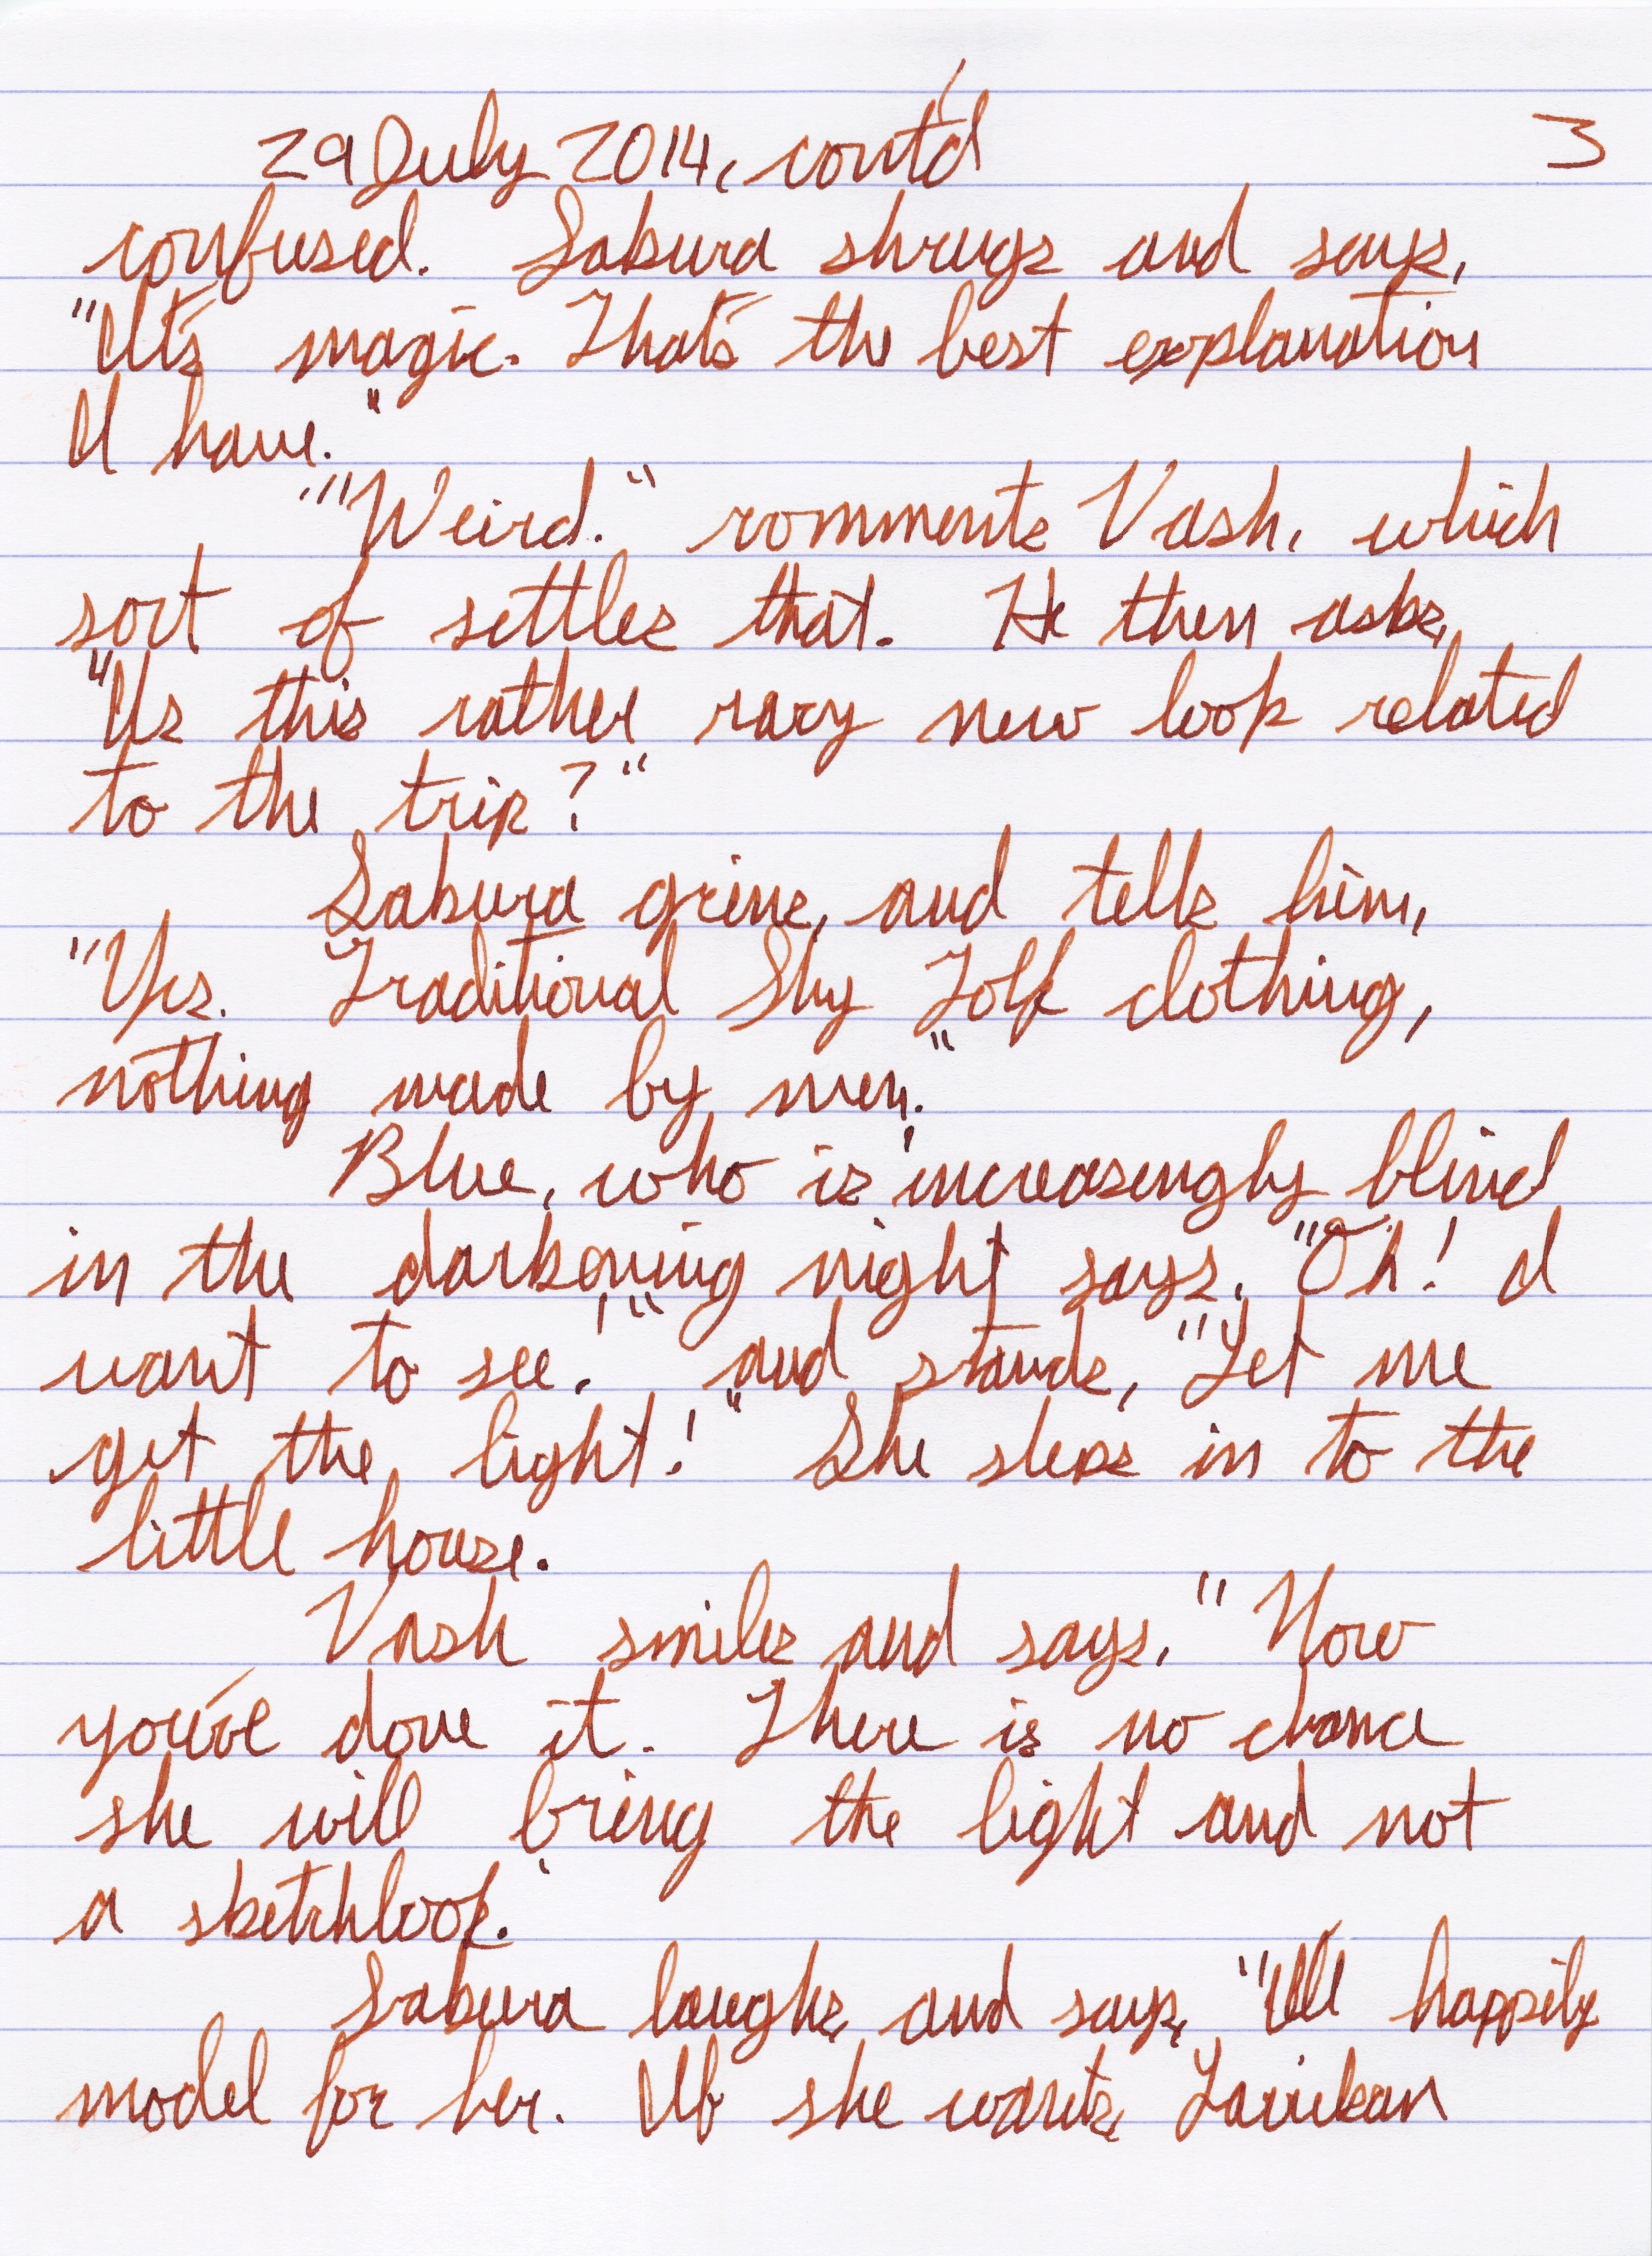 29 July 2014, cont'd 3
confused. Sakura shrugs and says,
"It's magic. That's the best explanation
I have."
"Weird." comments Vash, which
sort of settles that. He then asks,
"Is this rather racy new look related
to the trip?"
Sakura grins, and tells him,
"Yes. Traditional Sky Folk clothing,
nothing made by men."
Blue, who is increasingly blind
in the darkening night says, "Oh! I
want to see!" and stands, "Let me
get the light!" She steps in to the
little house.
Vash smiles and says, "Now
you've done it. There is no chance
she will bring the light and not
a sketchbook."
Sakura laughs, and says, "I'll happily
model for her. If she wants, Larrikan